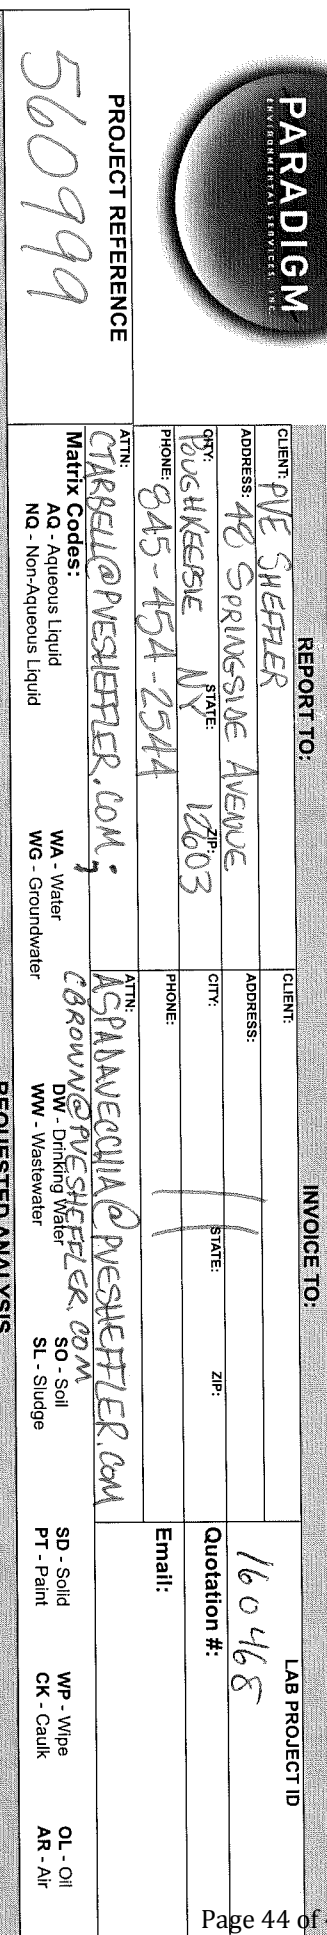 PARADIGM
ENVIRONMENTAL SERVICES, INC.
PROJECT REFERENCE
560999
REPORT TO:
CLIENT: PVE SHEFFLER
ADDRESS: 48 SPRINGSIDE AVENUE
CITY: POUGHKEEPSIE STATE: NY ZIP: 12603
PHONE: 845-454-2544
ATTN: CTARBELL@PVESHEFFLER.COM;
INVOICE TO:
CLIENT:
ADDRESS:
CITY: STATE: ZIP:
PHONE:
ATTN: ASPADAVECCHIA@PVESHEFFLER.COM
CBROWN@PVESHEFFLER.COM
LAB PROJECT ID
160468
Quotation #:
Email:
Matrix Codes:
AQ - Aqueous Liquid
NQ - Non-Aqueous Liquid
WA - Water
WG - Groundwater
DW - Drinking Water
WW - Wastewater
SO - Soil
SL - Sludge
SD - Solid
PT - Paint
WP - Wipe
CK - Caulk
OL - Oil
AR - Air
REQUESTED ANALYSIS
Page 44 of